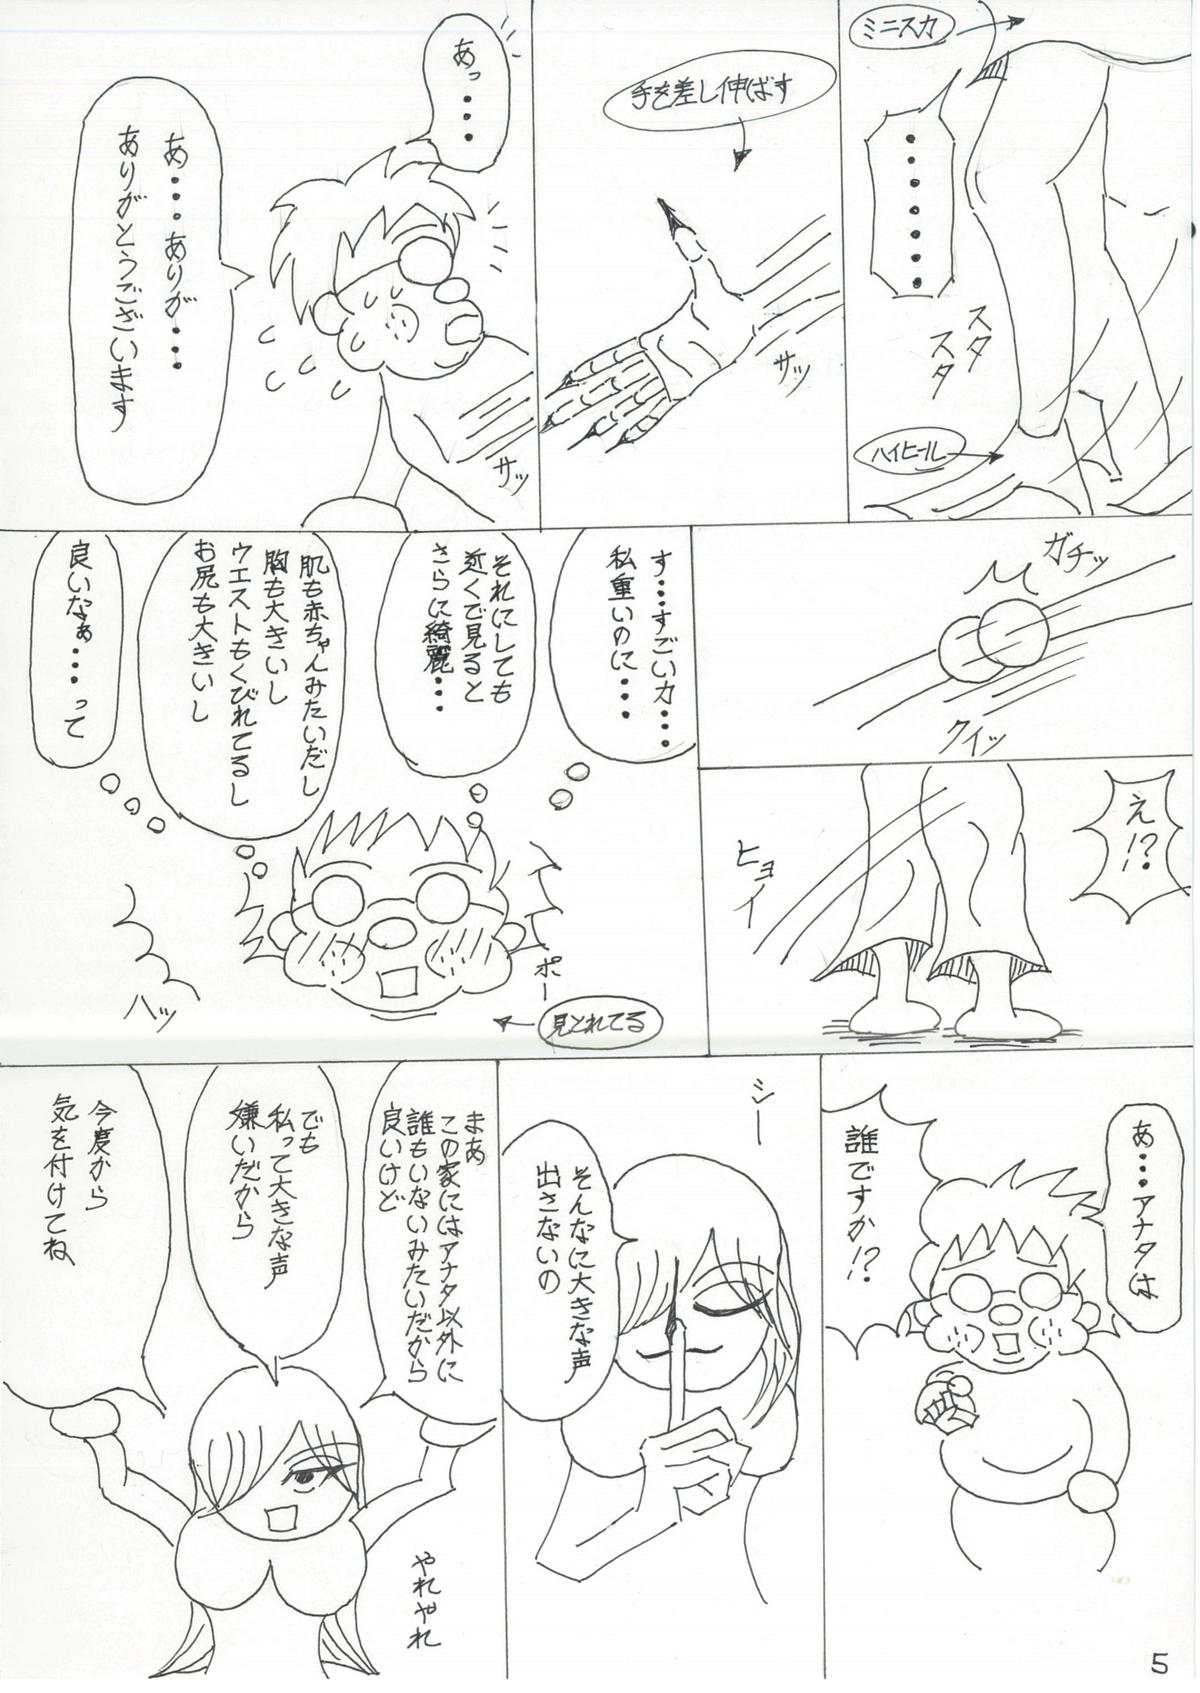 ミニスカ
・・・・・・・
スタ
スタ
ハイヒール
手を差し伸ばす
サッ
あっ・・・・
サッ
あ・・・ありが・・・
ありがとうございます
ガチッ
クイッ
え!?
ヒョイ
す・・・すごい力・・・
私重いのに・・・・
それにしても
近くで見ると
さらに綺麗・・・
肌も赤ちゃんみたいだし
胸も大きいし
ウエストもくびれてるし
お尻も大きいし
良いなぁ・・・・って
ポー
見とれてる
ハッ
あ・・・アナタは
誰ですか!?
シー
そんなに大きな声
出さないの
まあ
この家にはアナタ以外に
誰もいないみたいだから
良いけど
でも
私って大きな声
嫌いだから
今度から
気を付けてね
やれやれ
5